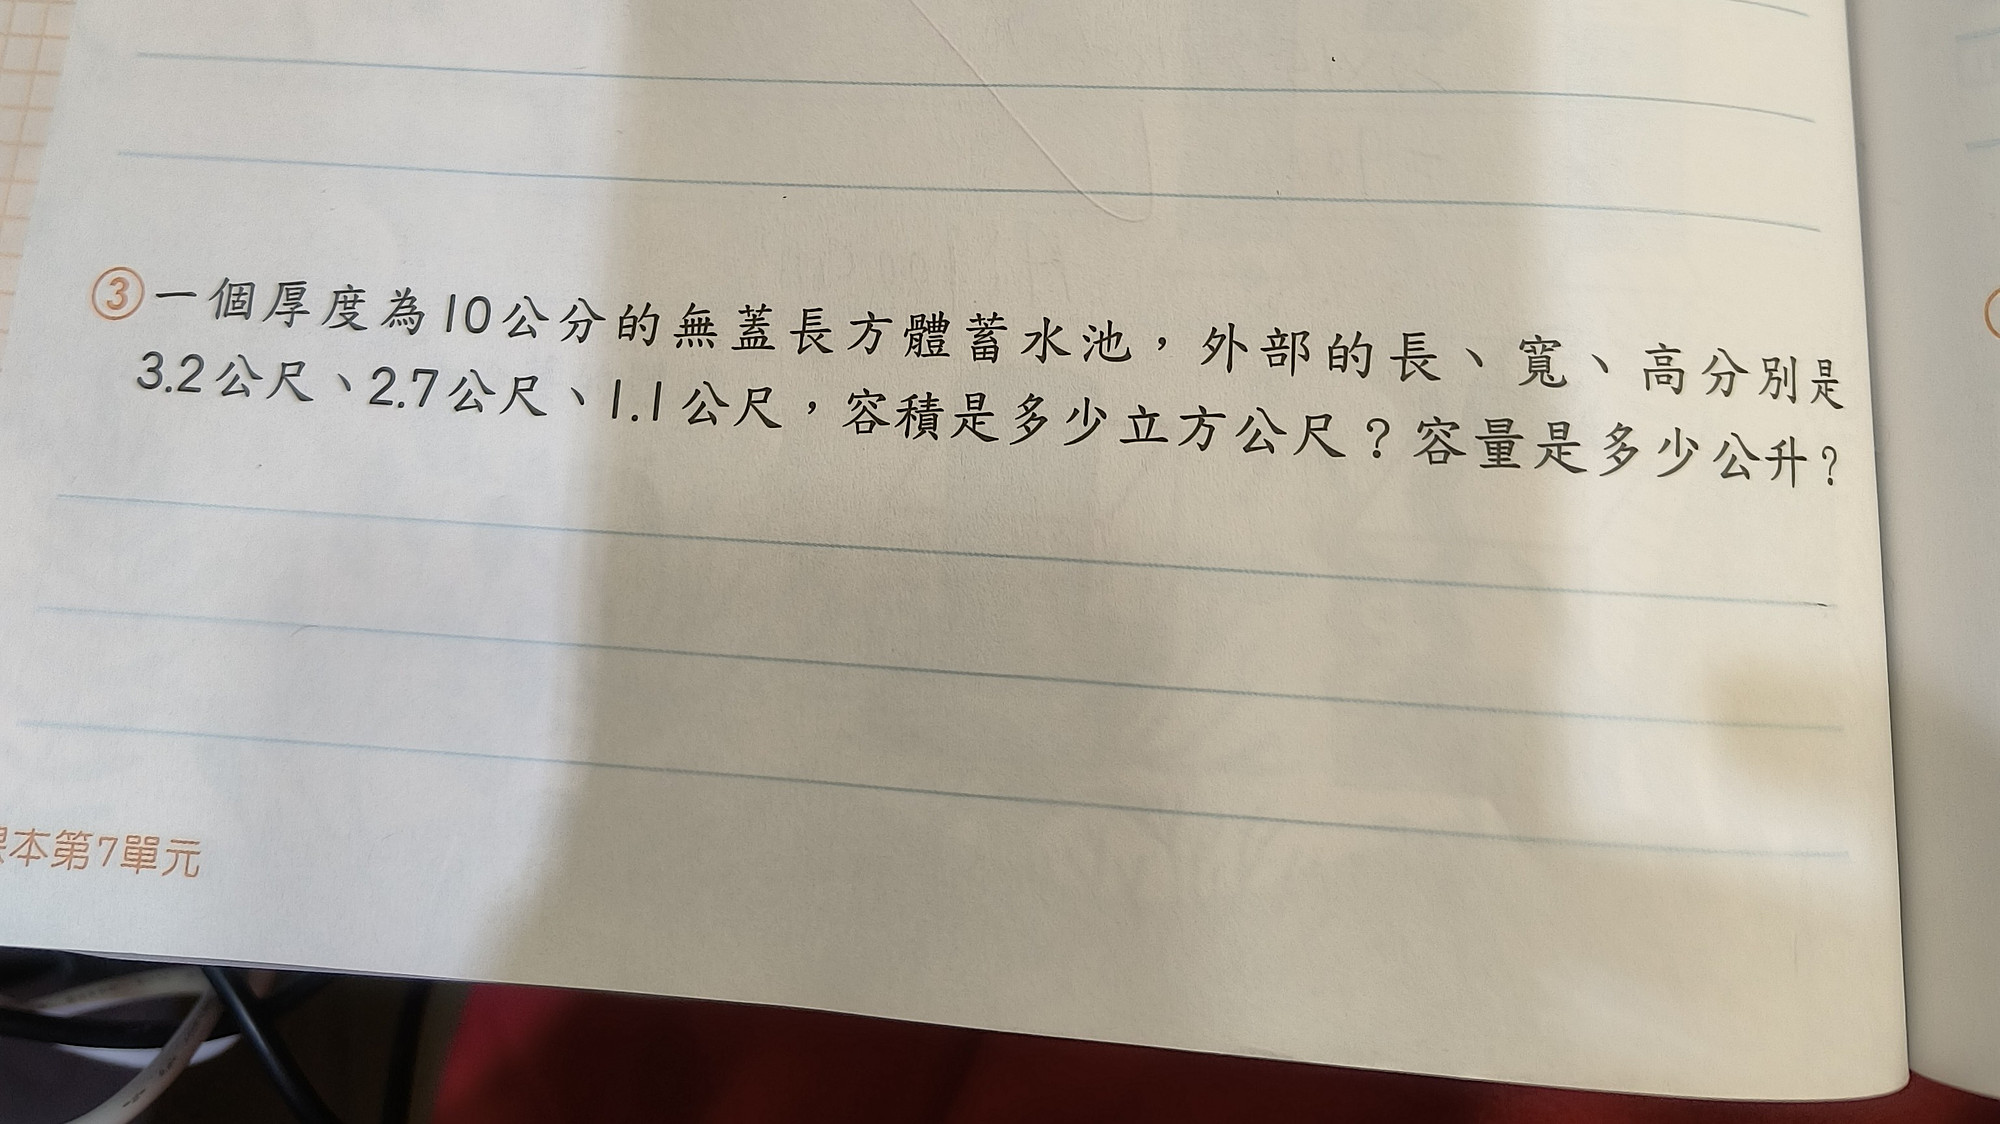 ③一個厚度為10公分的無蓋長方體蓄水池，外部的長、寬、高分別是
3.2公尺、2.7公尺、1.1公尺，容積是多少立方公尺？容量是多少公升？
本第7單元